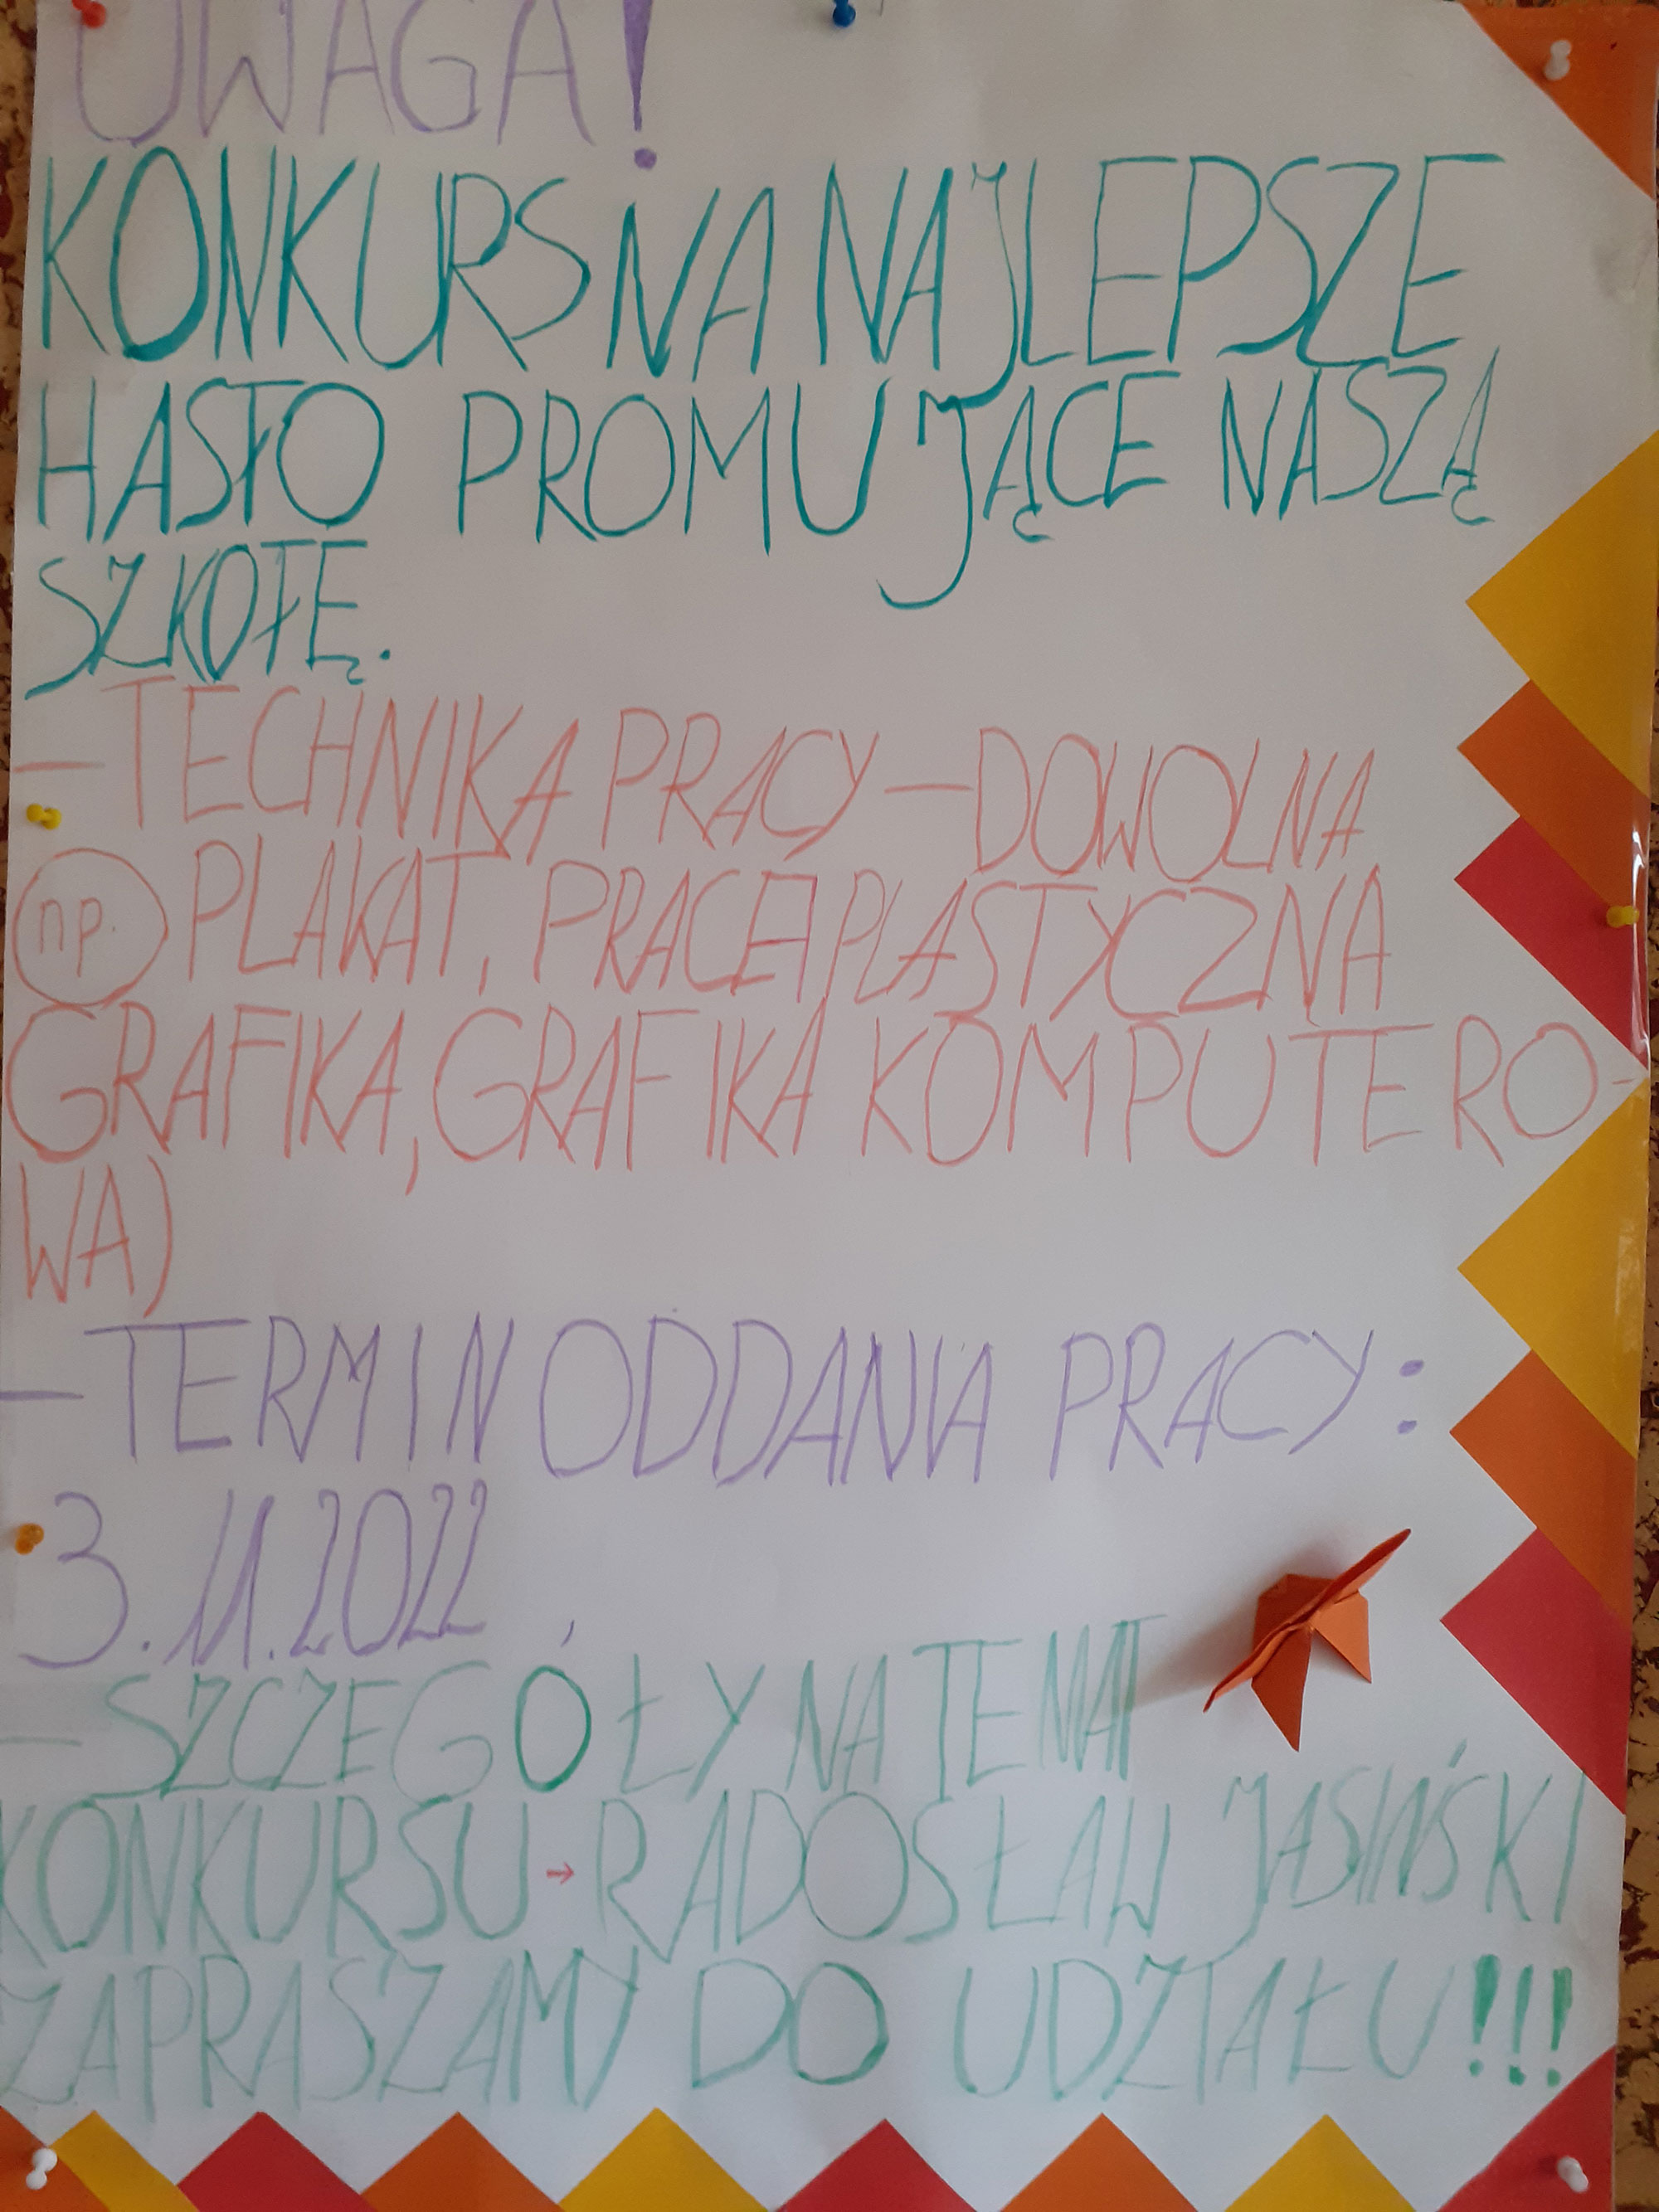 UWAGA!
KONKURS NA NAJLEPSZE
HASŁO PROMUJĄCE NASZĄ
SZKOŁĘ.
– TECHNIKA PRACY – DOWOLNA
np. PLAKAT, PRACA PLASTYCZNA
GRAFIKA, GRAFIKA KOMPUTERO-
WA)
– TERMIN ODDANIA PRACY:
3.11.2022
– SZCZEGÓŁY NA TEMAT
KONKURSU → RADOSŁAW JASIŃSKI
ZAPRASZAMY DO UDZIAŁU!!!